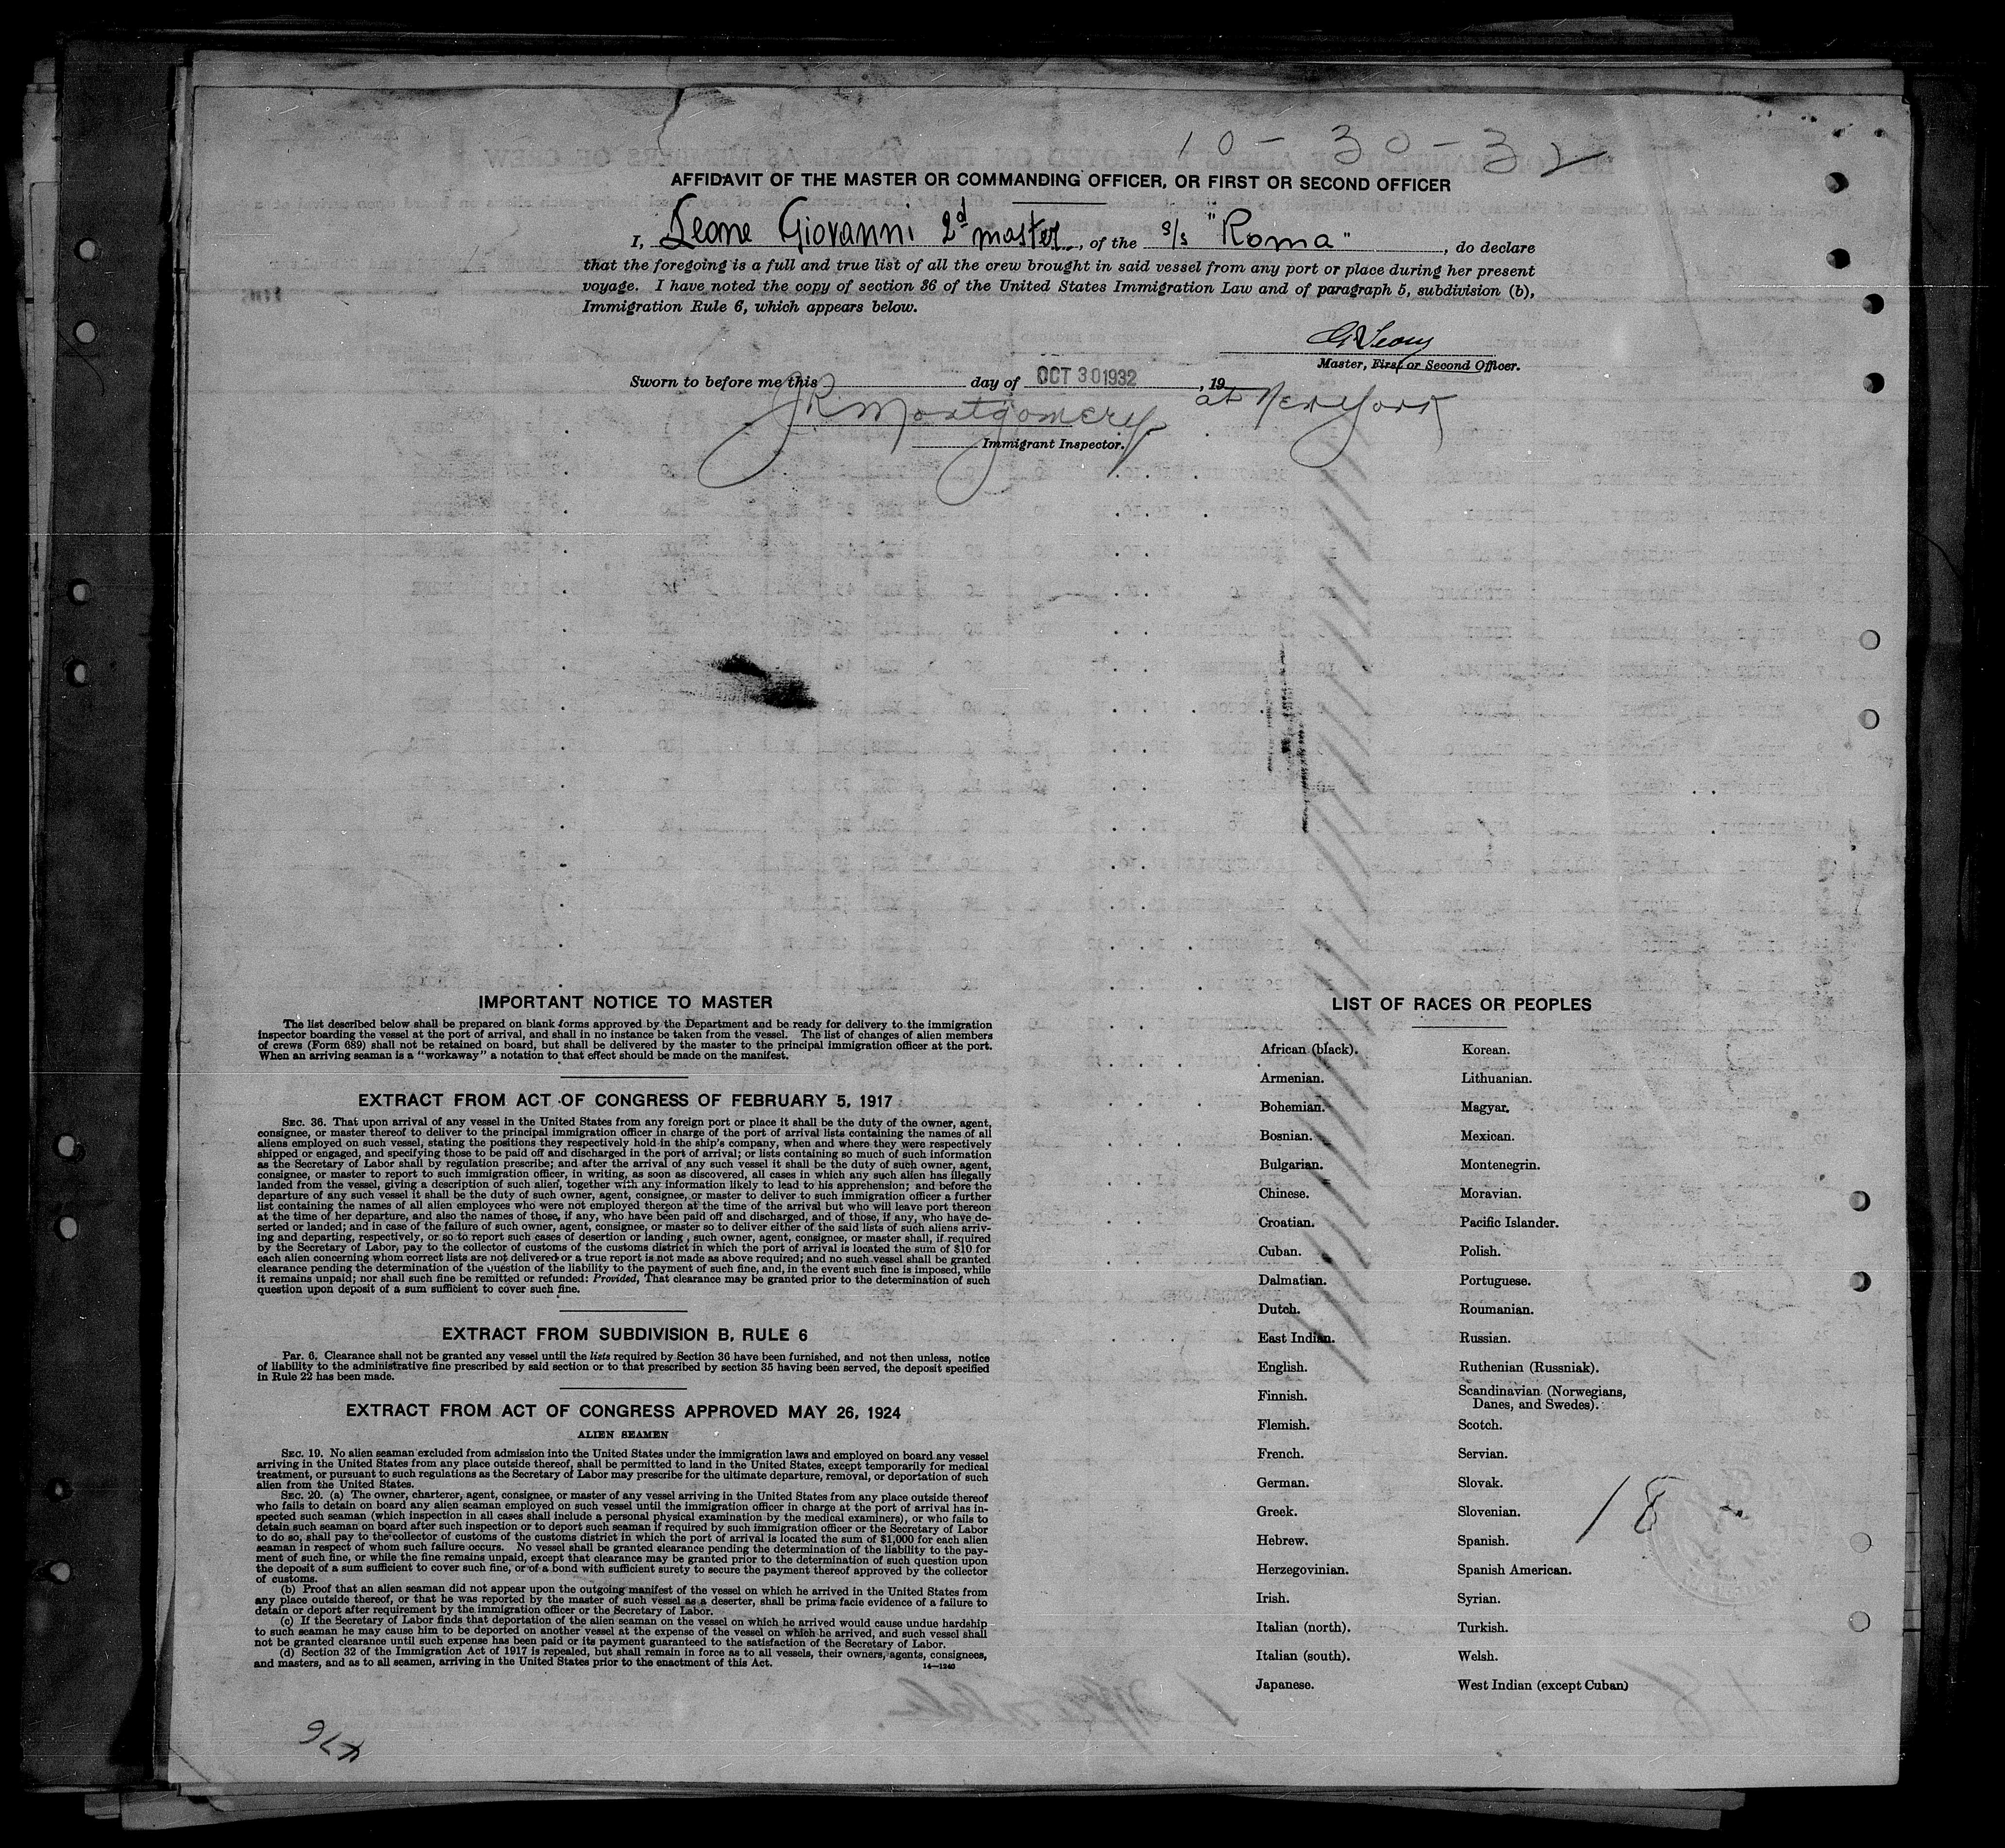 10-30-32
AFFIDAVIT OF THE MASTER OR COMMANDING OFFICER, OR FIRST OR SECOND OFFICER
I, Leone Giovanni 2d master, of the s/s "Roma", do declare
that the foregoing is a full and true list of all the crew brought in said vessel from any port or place during her present
voyage. I have noted the copy of section 36 of the United States Immigration Law and of paragraph 5, subdivision (b),
Immigration Rule 6, which appears below.
G. Leone
Master, First or Second Officer.
Sworn to before me this day of OCT 30 1932, 19
at New York
JR Montgomery
Immigrant Inspector.
IMPORTANT NOTICE TO MASTER
The list described below shall be prepared on blank forms approved by the Department and be ready for delivery to the immigration
inspector boarding the vessel at the port of arrival, and shall in no instance be taken from the vessel. The list of changes of alien members
of crews (Form 689) shall not be retained on board, but shall be delivered by the master to the principal immigration officer at the port.
When an arriving seaman is a "workaway" a notation to that effect should be made on the manifest.
EXTRACT FROM ACT OF CONGRESS OF FEBRUARY 5, 1917
SEC. 36. That upon arrival of any vessel in the United States from any foreign port or place it shall be the duty of the owner, agent,
consignee, or master thereof to deliver to the principal immigration officer in charge of the port of arrival lists containing the names of all
aliens employed on such vessel, stating the positions they respectively hold in the ship's company, when and where they were respectively
shipped or engaged, and specifying those to be paid off and discharged in the port of arrival; or lists containing so much of such information
as the Secretary of Labor shall by regulation prescribe; and after the arrival of any such vessel it shall be the duty of such owner, agent,
consignee, or master to report to such immigration officer, in writing, as soon as discovered, all cases in which any such alien has illegally
landed from the vessel, giving a description of such alien, together with any information likely to lead to his apprehension; and before the
departure of any such vessel it shall be the duty of such owner, agent, consignee, or master to deliver to such immigration officer a further
list containing the names of all alien employees who were not employed thereon at the time of the arrival but who will leave port thereon
at the time of her departure, and also the names of those, if any, who have been paid off and discharged, and of those, if any, who have de-
serted or landed; and in case of the failure of such owner, agent, consignee, or master so to deliver either of the said lists of such aliens arriv-
ing and departing, respectively, or so to report such cases of desertion or landing, such owner, agent, consignee, or master shall, if required
by the Secretary of Labor, pay to the collector of customs of the customs district in which the port of arrival is located the sum of $10 for
each alien concerning whom correct lists are not delivered or a true report is not made as above required; and no such vessel shall be granted
clearance pending the determination of the question of the liability to the payment of such fine, and, in the event such fine is imposed, while
it remains unpaid; nor shall such fine be remitted or refunded: Provided, That clearance may be granted prior to the determination of such
question upon deposit of a sum sufficient to cover such fine.
EXTRACT FROM SUBDIVISION B, RULE 6
Par. 6. Clearance shall not be granted any vessel until the lists required by Section 36 have been furnished, and not then unless, notice
of liability to the administrative fine prescribed by said section or to that prescribed by section 35 having been served, the deposit specified
in Rule 22 has been made.
EXTRACT FROM ACT OF CONGRESS APPROVED MAY 26, 1924
ALIEN SEAMEN
SEC. 19. No alien seaman excluded from admission into the United States under the immigration laws and employed on board any vessel
arriving in the United States from any place outside thereof, shall be permitted to land in the United States, except temporarily for medical
treatment, or pursuant to such regulations as the Secretary of Labor may prescribe for the ultimate departure, removal, or deportation of such
alien from the United States.
SEC. 20. (a) The owner, charterer, agent, consignee, or master of any vessel arriving in the United States from any place outside thereof
who fails to detain on board any alien seaman employed on such vessel until the immigration officer in charge at the port of arrival has in-
spected such seaman (which inspection in all cases shall include a personal physical examination by the medical examiners), or who fails to
detain such seaman on board after such inspection or to deport such seaman if required by such immigration officer or the Secretary of Labor
to do so, shall pay to the collector of customs of the customs district in which the port of arrival is located the sum of $1,000 for each alien
seaman in respect of whom such failure occurs. No vessel shall be granted clearance pending the determination of the liability to the pay-
ment of such fine, or while the fine remains unpaid, except that clearance may be granted prior to the determination of such question upon
the deposit of a sum sufficient to cover such fine, or of a bond with sufficient surety to secure the payment thereof approved by the collector
of customs.
(b) Proof that an alien seaman did not appear upon the outgoing manifest of the vessel on which he arrived in the United States from
any place outside thereof, or that he was reported by the master of such vessel as a deserter, shall be prima facie evidence of a failure to
detain or deport after requirement by the immigration officer or the Secretary of Labor.
(c) If the Secretary of Labor finds that deportation of the alien seaman on the vessel on which he arrived would cause undue hardship
to such seaman he may cause him to be deported on another vessel at the expense of the vessel on which he arrived, and such vessel shall
not be granted clearance until such expense has been paid or its payment guaranteed to the satisfaction of the Secretary of Labor.
(d) Section 32 of the Immigration Act of 1917 is repealed, but shall remain in force as to all vessels, their owners, agents, consignees,
and masters, and as to all seamen, arriving in the United States prior to the enactment of this Act.
14—1240
LIST OF RACES OR PEOPLES
African (black). Korean.
Armenian. Lithuanian.
Bohemian. Magyar.
Bosnian. Mexican.
Bulgarian. Montenegrin.
Chinese. Moravian.
Croatian. Pacific Islander.
Cuban. Polish.
Dalmatian. Portuguese.
Dutch. Roumanian.
East Indian. Russian.
English. Ruthenian (Russniak).
Finnish. Scandinavian (Norwegians,
Danes, and Swedes).
Flemish. Scotch.
French. Servian.
German. Slovak.
Greek. Slovenian.
Hebrew. Spanish.
Herzegovinian. Spanish American.
Irish. Syrian.
Italian (north). Turkish.
Italian (south). Welsh.
Japanese. West Indian (except Cuban)
18